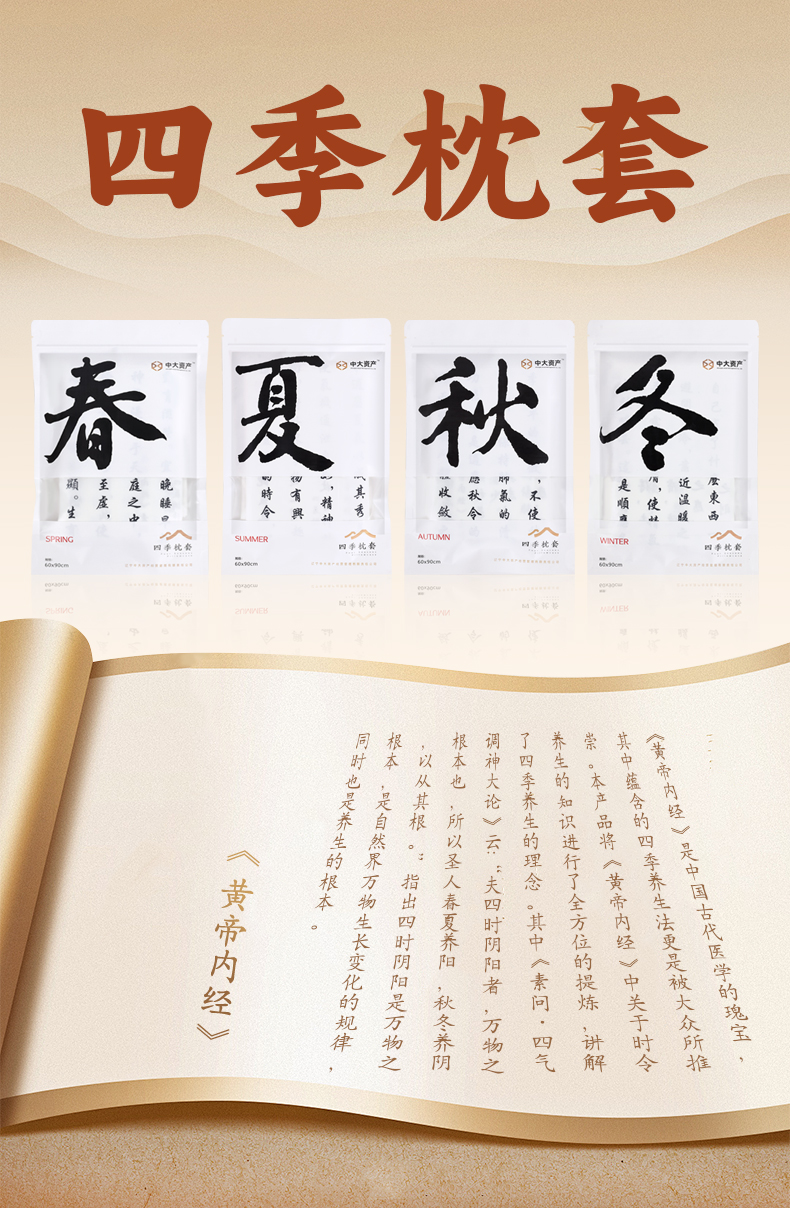 四季枕套
春
中大资产
晚睡
庭之中
至虚，
顯。生
SPRING
四季枕套
60x90cm
夏
中大资产
其秀
，精神
物有興
的時令
SUMMER
四季枕套
60x90cm
秋
中大资产
，不使
肺氣的
應秋令
收斂
AUTUMN
四季枕套
60x90cm
冬
中大资产
麼東西
近温暖
，使
是順應
WINTER
四季枕套
60x90cm
《黄帝内经》是中国古代医学的瑰宝，
其中蕴含的四季养生法更是被大众所推
崇。本产品将《黄帝内经》中关于时令
养生的知识进行了全方位的提炼，讲解
了四季养生的理念。其中《素问·四气
调神大论》云：“夫四时阴阳者，万物之
根本也，所以圣人春夏养阳，秋冬养阴
，以从其根。”指出四时阴阳是万物之
根本，是自然界万物生长变化的规律，
同时也是养生的根本。
《黄帝内经》